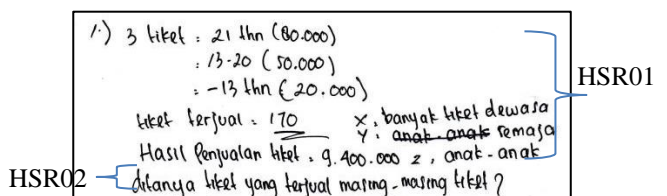 1.) 3 tiket : 21 thn (80.000)
: 13-20 (50.000)
: -13 thn (20.000)
tiket terjual : 170 X : banyak tiket dewasa
Y : anak-anak remaja
Hasil Penjualan tiket : 9.400.000 z : anak-anak
ditanya tiket yang terjual masing-masing tiket ?
HSR01
HSR02